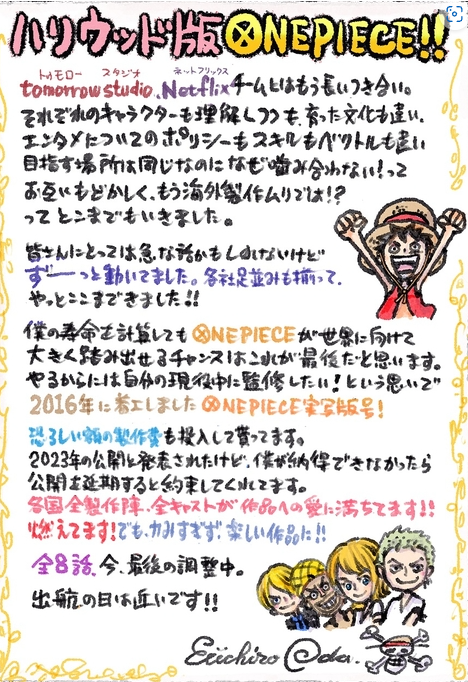 ハリウッド版 ONE PIECE!!
トゥモロー スタジオ ネットフリックス
tomorrow studio、Netflixチームとはもう長いつき合い。
それぞれのキャラクターも理解しつつも、育った文化も違い、
エンタメについてのポリシーもスキルもベクトルも違い
目指す場所は同じなのになぜ噛み合わない!って
お互いもどかしく、もう海外製作ムリでは!?
ってとこまでもいきました。
皆さんにとっては急な話かもしれないけど
ず──っと動いてました。各社足並みも揃って、
やっとここまできました!!
僕の寿命を計算しても ONE PIECE が世界に向けて
大きく踏み出せるチャンスはこれが最後だと思います。
やるからには自分の現役中に監修したい!という思いで
2016年に着工しました ONE PIECE実写版号!
恐ろしい額の製作費も投入して貰ってます。
2023年の公開と発表されたけど、僕が納得できなかったら
公開を延期すると約束してくれてます。
各国全製作陣、全キャストが作品への愛に満ちてます!!
燃えてます!でも、力みすぎず、楽しい作品に!!
全8話、今、最後の調整中。
出航の日は近いです!!
Eiichiro Oda.